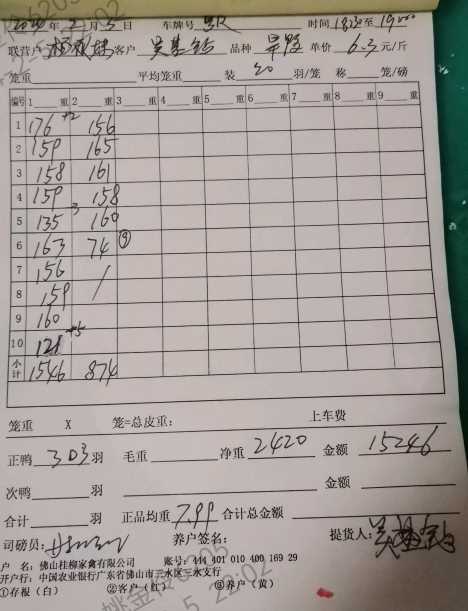 年 2 月 5 日 车牌号 时间 18:30 至 19:00
联营户 客户 吴 品种 单价 6.3 元/斤
笼重 平均笼重 装 20 羽/笼 称 笼/磅
编号 1 重 2 重 3 重 4 重 5 重 6 重 7 重 8 重 9 重
1 176 +2 156
2 159 165
3 158 161
4 159 158
5 135 3 160
6 163 74 ③
7 156 /
8 159
9 160
10 121 +5
小计 1546 874
笼重 X 笼=总皮重: 上车费
正鸭 303 羽 毛重 净重 2420 金额 15246
次鸭 羽 金额
合计 羽 正品均重 7.99 合计总金额
司磅员: 养户签名: 提货人:
户 名: 佛山桂柳家禽有限公司 账号: 444 401 010 400 169 29
开户行: 中国农业银行广东省佛山市三水区三水支行
①存根(白) ②客户(红) ③养户(黄)